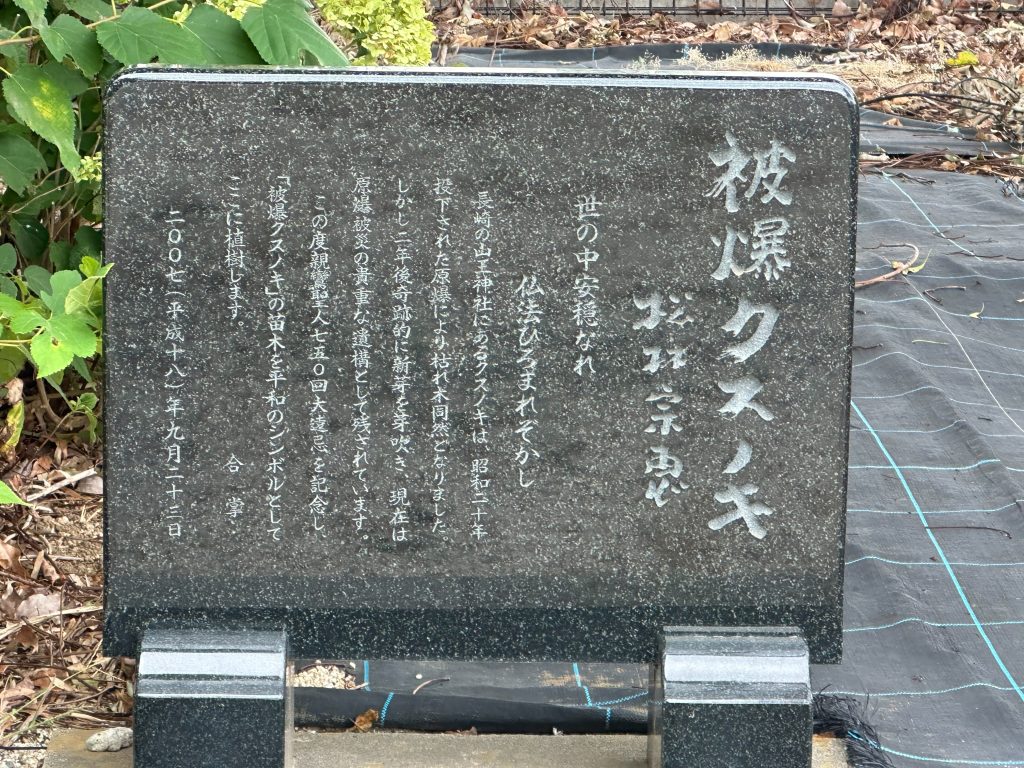 被爆クスノキ
松林宗恵
世の中安穏なれ
仏法ひろまれぞかし
長崎の山王神社にあるクスノキは、昭和二十年
投下された原爆により枯れ木同然となりました。
しかし二年後奇跡的に新芽を芽吹き、現在は
原爆被災の貴重な遺構として残されています。
この度親鸞聖人七五〇回大遠忌を記念し、
「被爆クスノキ」の苗木を平和のシンボルとして
ここに植樹します。
合掌
二〇〇七(平成十八)年九月二十三日